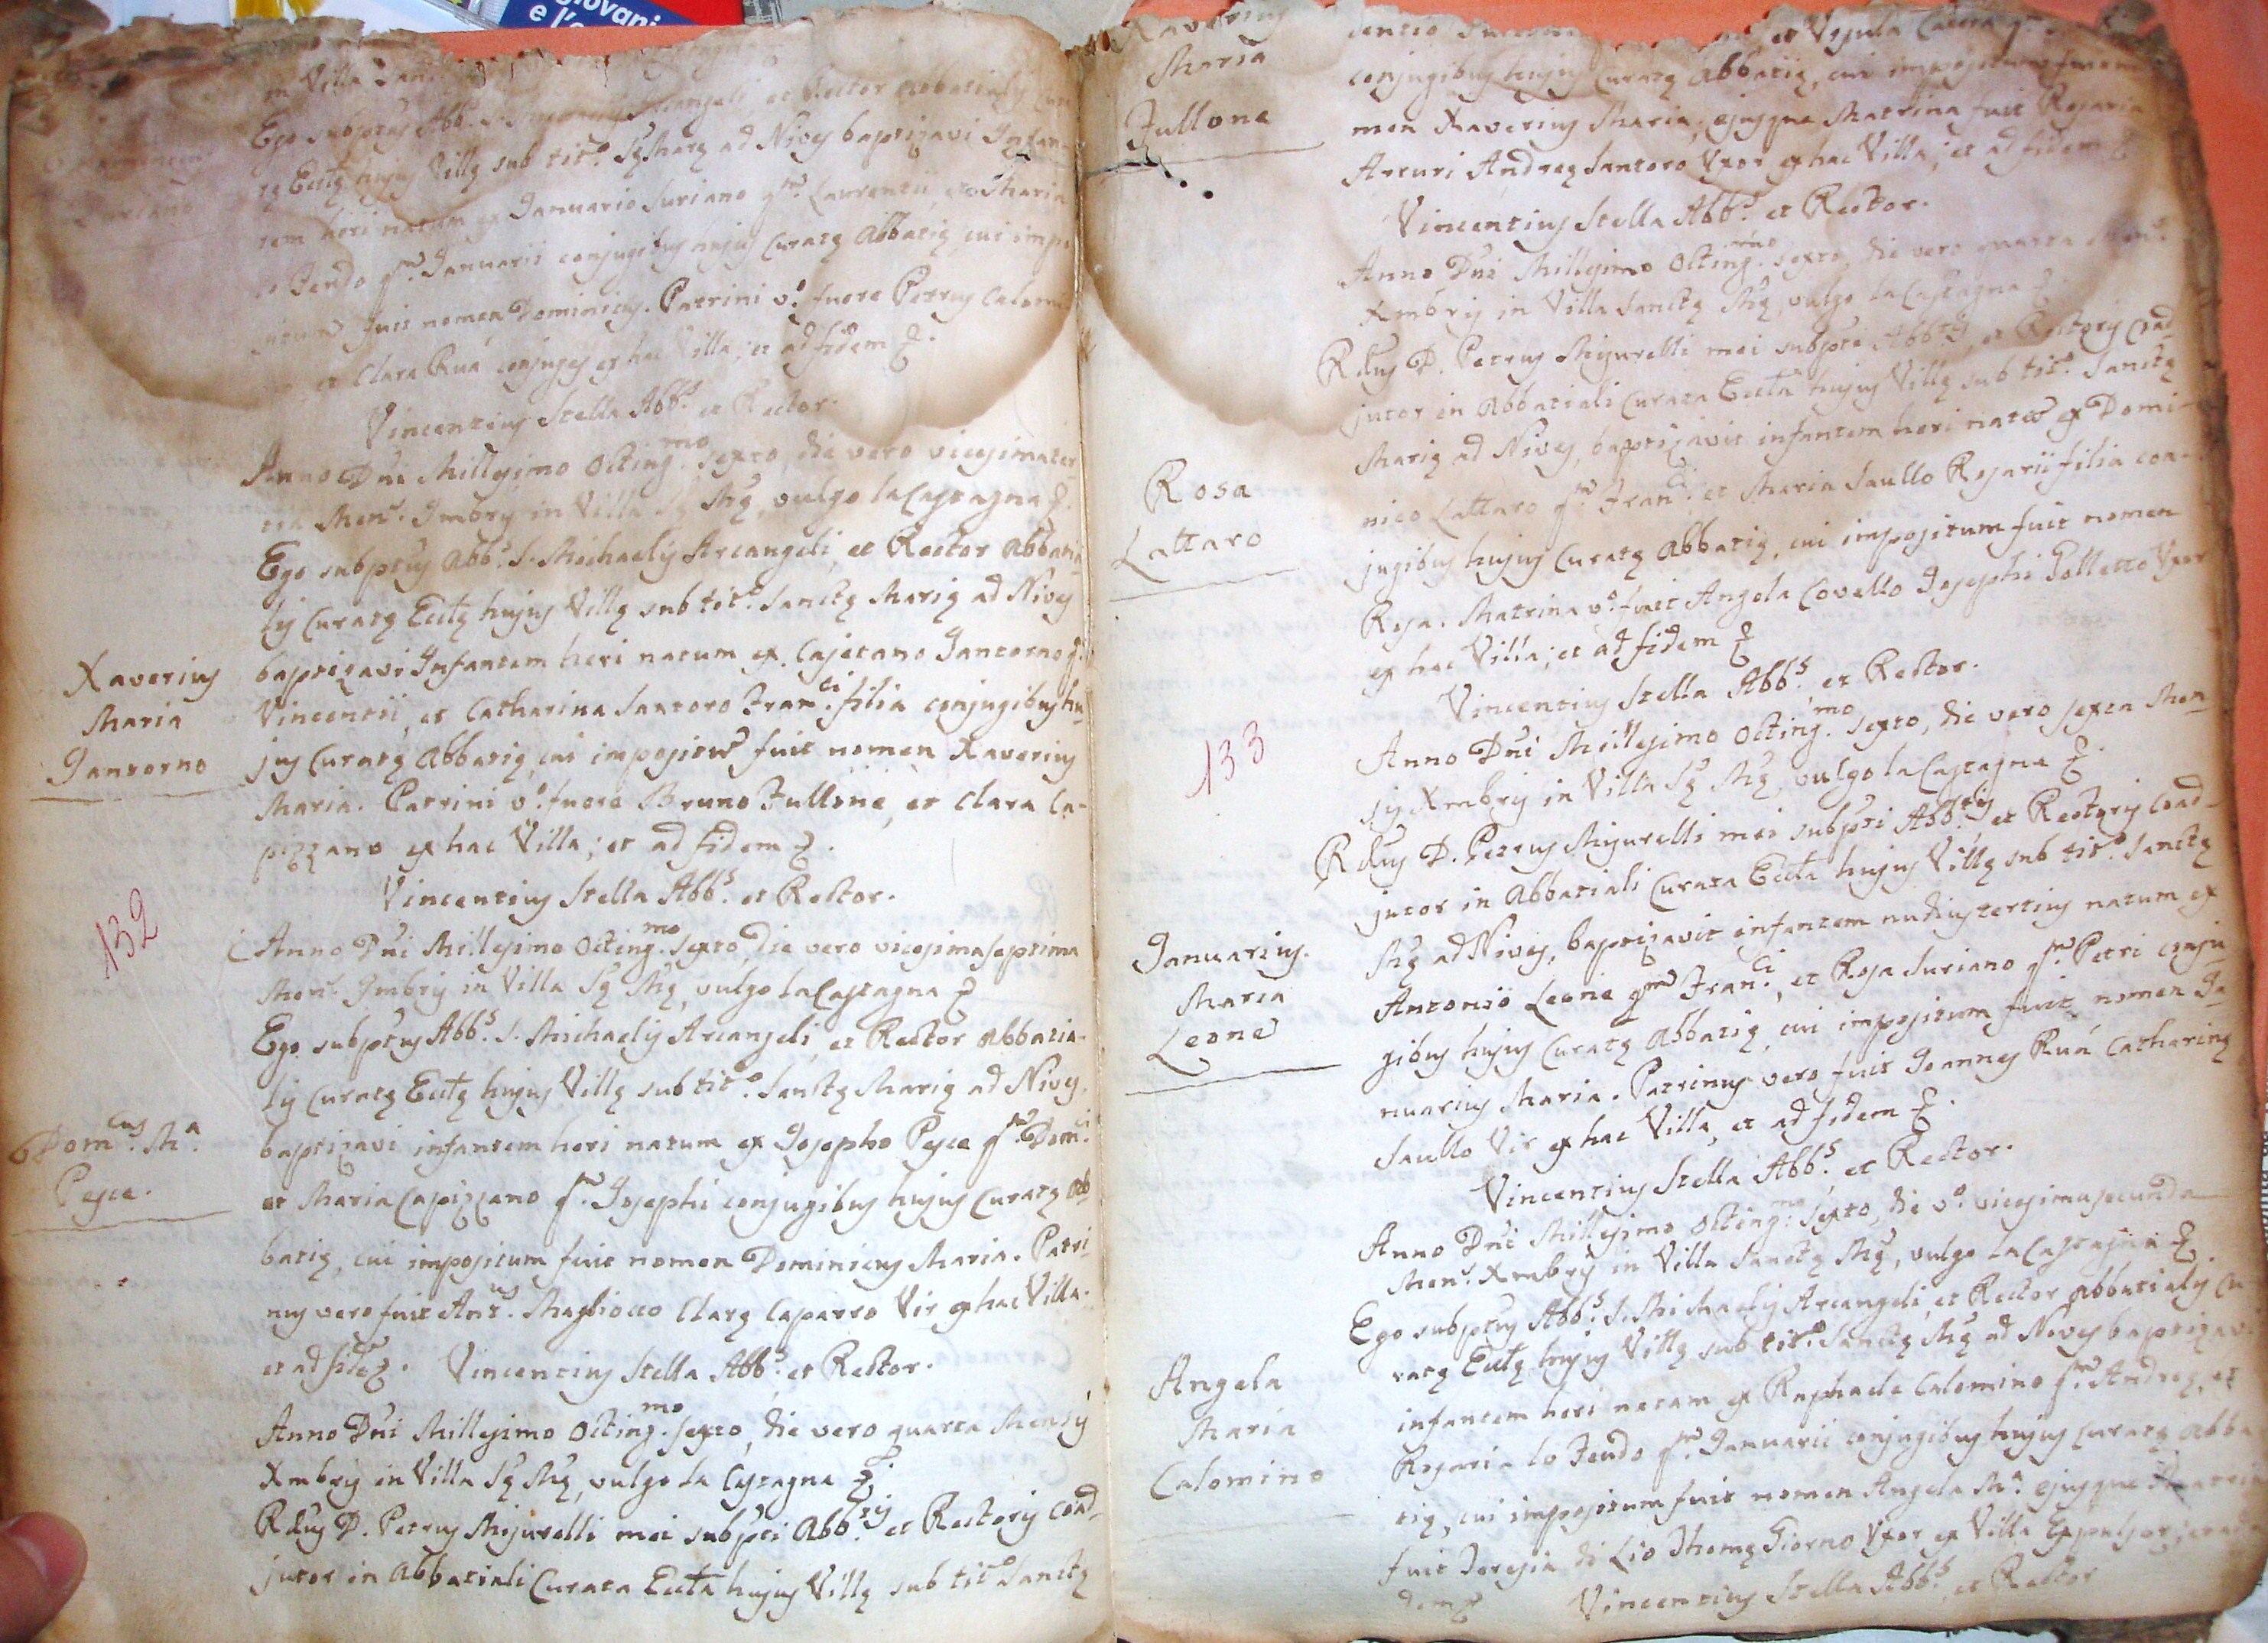 giovani
e l'
in Villa
Ego subptus Abb.s S. Michaelis Arcangeli, et Rector abbatialis Cura-
tę Ecclę hujus Villę sub tit.o Sę Marę ad Nives baptizavi Infan-
tem heri natum ex Januario Suriano qm. Laurentii, et Maria
lo Feudo qm. Januarii conjugibus hujus Curatę Abbatię cui impo-
situm fuit nomen Dominicus. Patrini v.o fuere Petrus Calomi-
no et Clara Ruá conjuges ex hac Villa; et ad fidem &.
Vincentius Stella Abb.s et Rector.
Anno Dni Millesimo Octing.mo sexto, die vero vicesimater-
tia Men.s 9mbris in Villa Sę Mę, vulgo la Castagna &.
Ego subptus Abb.s S. Michaelis Arcangeli, et Rector Abbatia-
lis Curatę Ecclę hujus Villę sub tit.o Sanctę Marię ad Nives
Xaverius
Maria
Jantorno
baptizavi Infantem heri natum ex Cajetano Jantorno q.
Vincentii, et Catharina Santoro Fran.ci filia conjugibus hu-
jus Curatę Abbatię, cui impositum fuit nomen Xaverius
Maria. Patrini v.o fuere Bruno Fullone, et Clara Ca-
pizzano ex hac Villa; et ad fidem &.
Vincentius Stella Abb.s et Rector.
132
Anno Dni Millesimo Octing.mo sexto, die vero vicesimaseptima
Men.s 9mbris in Villa Sę Mę, vulgo la Castagna &
Ego subptus Abb.s S. Michaelis Arcangeli, et Rector abbatia-
lis Curatę Ecclę hujus Villę sub tit.o Sanctę Marię ad Nives,
Dom.cus M.a
Pesce.
baptizavi infantem heri natum ex Josepho Pesce qm. Dom.ci
et Maria Capizzano qm. Josephi conjugibus hujus Curatę Ab
batię, cui impositum fuit nomen Dominicus Maria. Patri-
nus vero fuit Ant.us Magliocco Clarę Caparro Vir ex hac Villa.
et ad fidę &. Vincentius Stella Abb.s et Rector.
Anno Dni Millesimo Octing.mo sexto, die vero quarta Mensis
Xmbris in Villa Sę Mę, vulgo la Castagna &
Rdus D. Petrus Misurelli mei subpti Abb.tis et Rectoris Coad-
jutor in Abbatiali Curata Eccla hujus Villę sub tit.o Sanctę
Xaverius
Maria
Fullone
et Ursula
conjugibus hujus Curatę Abbatię, cui impositum fuit no-
men Xaverius Maria; ejusque Matrina fuit Rosaria
Arturi Andreę Santoro Uxor ex hac Villa; et ad fidem &
Vincentius Stella Abb.s et Rector.
Anno Dni Millesimo Octing.mo sexto, die vero quarta Men.s
Xmbris in Villa Sanctę Mę, vulgo la Castagna &
Rdus D. Petrus Misurelli mei subpti Abb.tis et Rectoris Coad-
jutor in Abbatiali Curata Eccla hujus Villę sub tit.o Sanctę
Marię ad Nives, baptizavit infantem heri natam ex Domi-
Rosa
Lattaro
nico Lattaro qm. Fran.ci et Maria Saullo Rosarii filia con-
jugibus hujus Curatę Abbatię, cui impositum fuit nomen
Rosa. Matrina v.o fuit Angela Covello Josephi Golletto Uxor
ex hac Villa; et ad fidem &
Vincentius Stella Abb.s et Rector.
133
Anno Dni Millesimo Octing.mo sexto, die vero sexta Men-
sis Xmbris in Villa Sę Mę, vulgo la Castagna &
Rdus D. Petrus Misurelli mei subpti Abb.tis et Rectoris Coad-
jutor in Abbatiali Curata Eccla hujus Villę sub tit.o Sanctę
Mę ad Nives, baptizavit infantem nudiustertius natum ex
Januarius.
Maria
Leone
Antonio Leone qm. Fran.ci, et Rosa Suriano qm. Petri conju-
gibus hujus Curatę Abbatię, cui impositum fuit nomen Ja-
nuarius Maria. Patrinus vero fuit Joannes Ruá Catharinę
Saullo Vir ex hac Villa, et ad fidem &.
Vincentius Stella Abb.s et Rector.
Anno Dni Millesimo Octing.mo sexto, die v.o vicesimasecunda
Men.s Xmbris in Villa Sanctę Mę, vulgo la Castagna &.
Ego subptus Abb.s S. Michaelis Arcangeli, et Rector abbatialis Cu
ratę Ecclę hujus Villę sub tit.o Sanctę Mę ad Nives baptizavi
Angela
Maria
Calomino
infantem heri natam ex Raphaele Calomino qm. Andreę, et
Rosaria lo Feudo qm. Januarii conjugibus hujus Curatę Abba
tię, cui impositum fuit nomen Angela M.a ejusque Matri
fuit Teresia di Lio Thomę Giorno Uxor ex Villa
dem & Vincentius Stella Abb.s et Rector